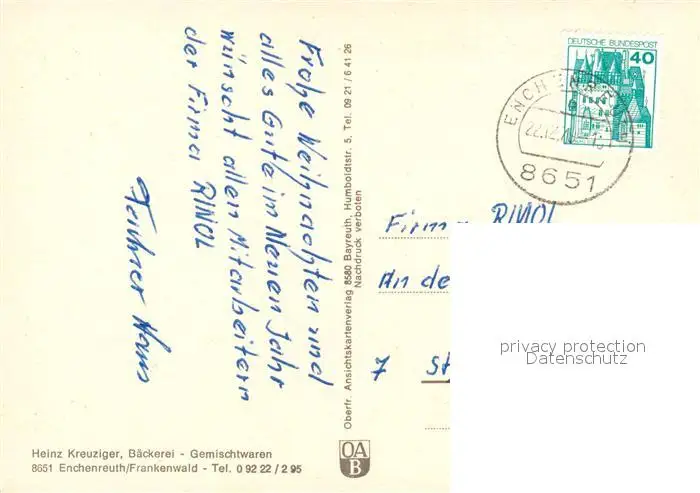 Frohe Weihnachten und
alles Gute im Neuen Jahr
wünscht allen Mitarbeitern
der Firma RINOL
Hans
Heinz Kreuziger, Bäckerei - Gemischtwaren
8651 Enchenreuth/Frankenwald - Tel. 0 92 22 / 2 95
Oberfr. Ansichtskartenverlag 8580 Bayreuth, Humboldtstr. 5, Tel. 09 21 / 6 41 26
Nachdruck verboten
OA
B
DEUTSCHE BUNDESPOST
40
22.12.
8651
Firma RINOL
An de
7 St
privacy protection
Datenschutz